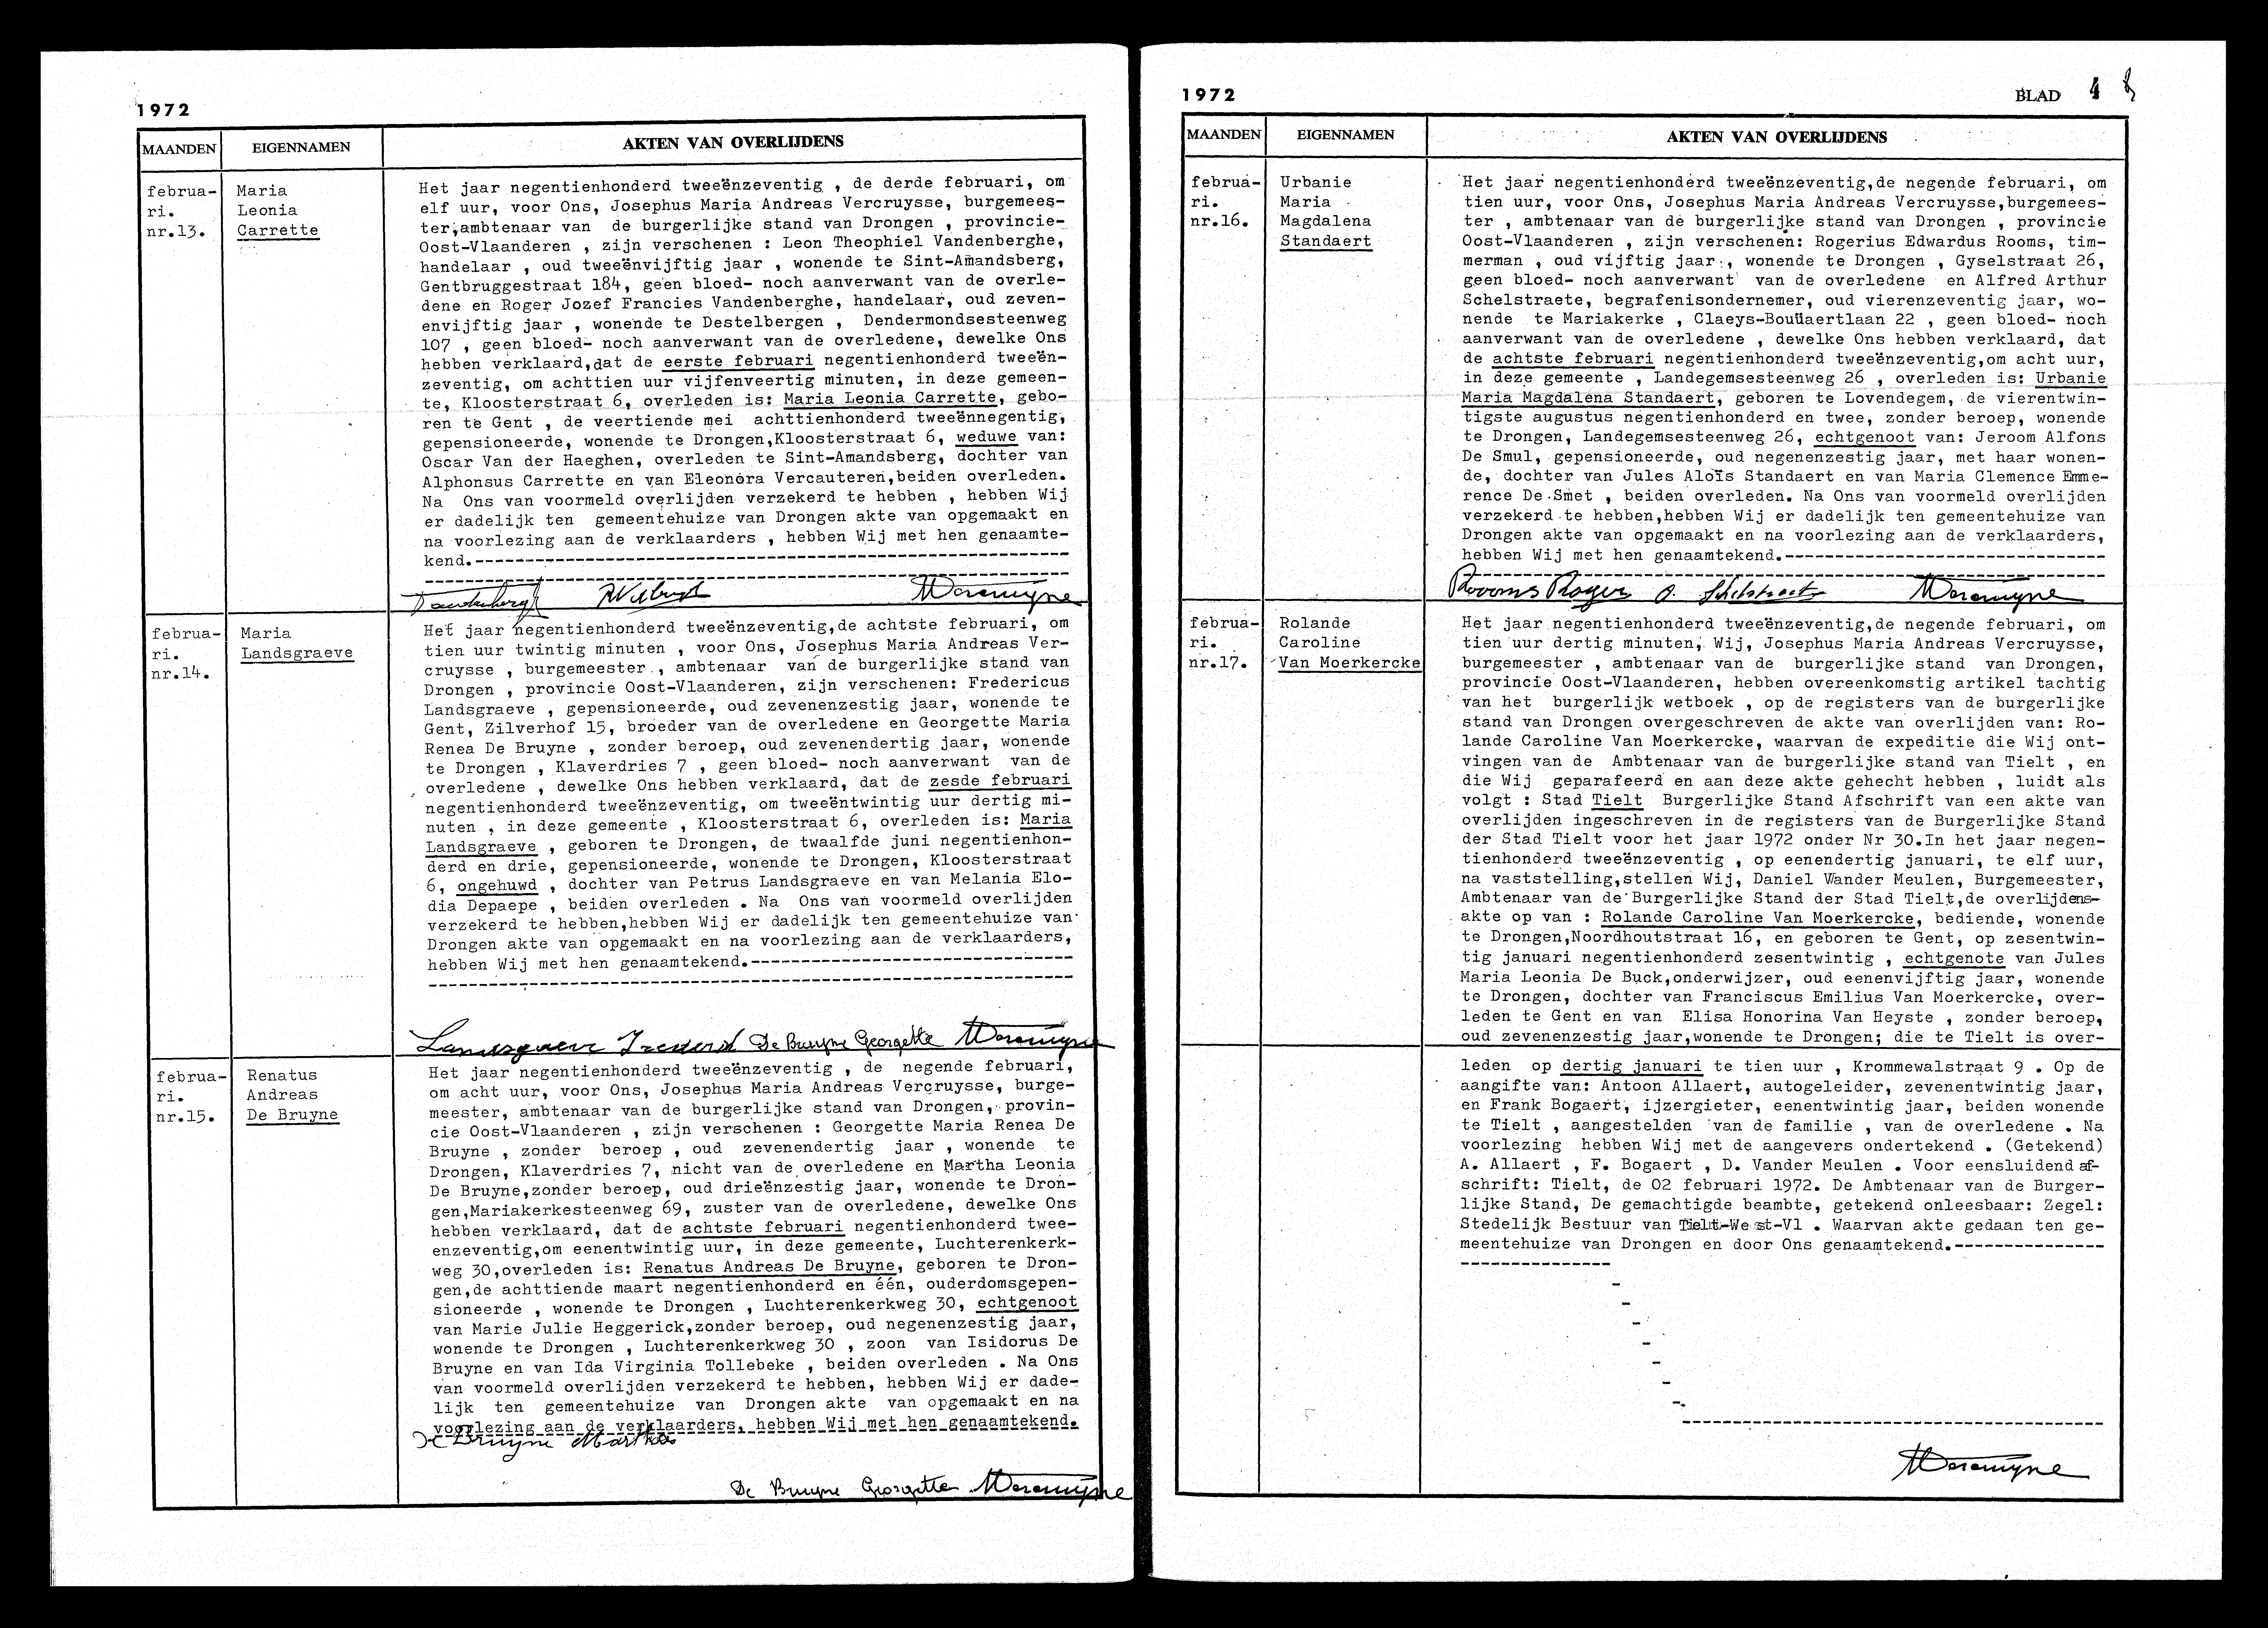 1972
MAANDEN
EIGENNAMEN
AKTEN VAN OVERLIJDENS
februa-
ri.
nr.13.
Maria
Leonia
Carrette
Het jaar negentienhonderd tweeënzeventig , de derde februari, om
elf uur, voor Ons, Josephus Maria Andreas Vercruysse, burgemees-
ter,ambtenaar van de burgerlijke stand van Drongen , provincie-
Oost-Vlaanderen , zijn verschenen : Leon Theophiel Vandenberghe,
handelaar , oud tweeënvijftig jaar , wonende te Sint-Amandsberg,
Gentbruggestraat 184, geen bloed- noch aanverwant van de overle-
dene en Roger Jozef Francies Vandenberghe, handelaar, oud zeven-
envijftig jaar , wonende te Destelbergen , Dendermondsesteenweg
107 , geen bloed- noch aanverwant van de overledene, dewelke Ons
hebben verklaard,dat de eerste februari negentienhonderd tweeën-
zeventig, om achttien uur vijfenveertig minuten, in deze gemeen-
te, Kloosterstraat 6, overleden is: Maria Leonia Carrette, gebo-
ren te Gent , de veertiende mei achttienhonderd tweeënnegentig,
gepensioneerde, wonende te Drongen,Kloosterstraat 6, weduwe van:
Oscar Van der Haeghen, overleden te Sint-Amandsberg, dochter van
Alphonsus Carrette en van Eleonora Vercauteren,beiden overleden.
Na Ons van voormeld overlijden verzekerd te hebben , hebben Wij
er dadelijk ten gemeentehuize van Drongen akte van opgemaakt en
na voorlezing aan de verklaarders , hebben Wij met hen genaamte-
kend.
februa-
ri.
nr.14.
Maria
Landsgraeve
Het jaar negentienhonderd tweeënzeventig,de achtste februari, om
tien uur twintig minuten , voor Ons, Josephus Maria Andreas Ver-
cruysse , burgemeester , ambtenaar van de burgerlijke stand van
Drongen , provincie Oost-Vlaanderen, zijn verschenen: Fredericus
Landsgraeve , gepensioneerde, oud zevenenzestig jaar, wonende te
Gent, Zilverhof 15, broeder van de overledene en Georgette Maria
Renea De Bruyne , zonder beroep, oud zevenendertig jaar, wonende
te Drongen , Klaverdries 7 , geen bloed- noch aanverwant van de
overledene , dewelke Ons hebben verklaard, dat de zesde februari
negentienhonderd tweeënzeventig, om tweeëntwintig uur dertig mi-
nuten , in deze gemeente , Kloosterstraat 6, overleden is: Maria
Landsgraeve , geboren te Drongen, de twaalfde juni negentienhon-
derd en drie, gepensioneerde, wonende te Drongen, Kloosterstraat
6, ongehuwd , dochter van Petrus Landsgraeve en van Melania Elo-
dia Depaepe , beiden overleden . Na Ons van voormeld overlijden
verzekerd te hebben,hebben Wij er dadelijk ten gemeentehuize van
Drongen akte van opgemaakt en na voorlezing aan de verklaarders,
hebben Wij met hen genaamtekend.
Landsgraeve De Bruyne Georgette
februa-
ri.
nr.15.
Renatus
Andreas
De Bruyne
Het jaar negentienhonderd tweeënzeventig , de negende februari,
om acht uur, voor Ons, Josephus Maria Andreas Vercruysse, burge-
meester, ambtenaar van de burgerlijke stand van Drongen, provin-
cie Oost-Vlaanderen , zijn verschenen : Georgette Maria Renea De
Bruyne , zonder beroep , oud zevenendertig jaar , wonende te
Drongen, Klaverdries 7, nicht van de overledene en Martha Leonia
De Bruyne,zonder beroep, oud drieënzestig jaar, wonende te Dron-
gen,Mariakerkesteenweg 69, zuster van de overledene, dewelke Ons
hebben verklaard, dat de achtste februari negentienhonderd twee-
enzeventig,om eenentwintig uur, in deze gemeente, Luchterenkerk-
weg 30,overleden is: Renatus Andreas De Bruyne, geboren te Dron-
gen,de achttiende maart negentienhonderd en één, ouderdomsgepen-
sioneerde , wonende te Drongen , Luchterenkerkweg 30, echtgenoot
van Marie Julie Heggerick,zonder beroep, oud negenenzestig jaar,
wonende te Drongen , Luchterenkerkweg 30 , zoon van Isidorus De
Bruyne en van Ida Virginia Tollebeke , beiden overleden . Na Ons
van voormeld overlijden verzekerd te hebben, hebben Wij er dade-
lijk ten gemeentehuize van Drongen akte van opgemaakt en na
voorlezing aan de verklaarders, hebben Wij met hen genaamtekend.
De Bruyne Martha
De Bruyne Georgette
1972
BLAD 4
MAANDEN
EIGENNAMEN
AKTEN VAN OVERLIJDENS
februa-
ri.
nr.16.
Urbanie
Maria
Magdalena
Standaert
Het jaar negentienhonderd tweeënzeventig,de negende februari, om
tien uur, voor Ons, Josephus Maria Andreas Vercruysse,burgemees-
ter , ambtenaar van de burgerlijke stand van Drongen , provincie
Oost-Vlaanderen , zijn verschenen: Rogerius Edwardus Rooms, tim-
merman , oud vijftig jaar , wonende te Drongen , Gyselstraat 26,
geen bloed- noch aanverwant van de overledene en Alfred Arthur
Schelstraete, begrafenisondernemer, oud vierenzeventig jaar, wo-
nende te Mariakerke , Claeys-Bouüaertlaan 22 , geen bloed- noch
aanverwant van de overledene , dewelke Ons hebben verklaard, dat
de achtste februari negentienhonderd tweeënzeventig,om acht uur,
in deze gemeente , Landegemsesteenweg 26 , overleden is: Urbanie
Maria Magdalena Standaert, geboren te Lovendegem, de vierentwin-
tigste augustus negentienhonderd en twee, zonder beroep, wonende
te Drongen, Landegemsesteenweg 26, echtgenoot van: Jeroom Alfons
De Smul, gepensioneerde, oud negenenzestig jaar, met haar wonen-
de, dochter van Jules Aloïs Standaert en van Maria Clemence Emme-
rence De Smet , beiden overleden. Na Ons van voormeld overlijden
verzekerd te hebben,hebben Wij er dadelijk ten gemeentehuize van
Drongen akte van opgemaakt en na voorlezing aan de verklaarders,
hebben Wij met hen genaamtekend.
Rooms Roger
februa-
ri.
nr.17.
Rolande
Caroline
Van Moerkercke
Het jaar negentienhonderd tweeënzeventig,de negende februari, om
tien uur dertig minuten, Wij, Josephus Maria Andreas Vercruysse,
burgemeester , ambtenaar van de burgerlijke stand van Drongen,
provincie Oost-Vlaanderen, hebben overeenkomstig artikel tachtig
van het burgerlijk wetboek , op de registers van de burgerlijke
stand van Drongen overgeschreven de akte van overlijden van: Ro-
lande Caroline Van Moerkercke, waarvan de expeditie die Wij ont-
vingen van de Ambtenaar van de burgerlijke stand van Tielt , en
die Wij geparafeerd en aan deze akte gehecht hebben , luidt als
volgt : Stad Tielt Burgerlijke Stand Afschrift van een akte van
overlijden ingeschreven in de registers van de Burgerlijke Stand
der Stad Tielt voor het jaar 1972 onder Nr 30.In het jaar negen-
tienhonderd tweeënzeventig , op eenendertig januari, te elf uur,
na vaststelling,stellen Wij, Daniel Vander Meulen, Burgemeester,
Ambtenaar van de Burgerlijke Stand der Stad Tielt,de overlijdens-
akte op van : Rolande Caroline Van Moerkercke, bediende, wonende
te Drongen,Noordhoutstraat 16, en geboren te Gent, op zesentwin-
tig januari negentienhonderd zesentwintig , echtgenote van Jules
Maria Leonia De Buck,onderwijzer, oud eenenvijftig jaar, wonende
te Drongen, dochter van Franciscus Emilius Van Moerkercke, over-
leden te Gent en van Elisa Honorina Van Heyste , zonder beroep,
oud zevenenzestig jaar,wonende te Drongen; die te Tielt is over-
leden op dertig januari te tien uur , Krommewalstraat 9 . Op de
aangifte van: Antoon Allaert, autogeleider, zevenentwintig jaar,
en Frank Bogaert, ijzergieter, eenentwintig jaar, beiden wonende
te Tielt , aangestelden van de familie , van de overledene . Na
voorlezing hebben Wij met de aangevers ondertekend . (Getekend)
A. Allaert , F. Bogaert , D. Vander Meulen . Voor eensluidend af-
schrift: Tielt, de 02 februari 1972. De Ambtenaar van de Burger-
lijke Stand, De gemachtigde beambte, getekend onleesbaar: Zegel:
Stedelijk Bestuur van Tielt-West-Vl . Waarvan akte gedaan ten ge-
meentehuize van Drongen en door Ons genaamtekend.